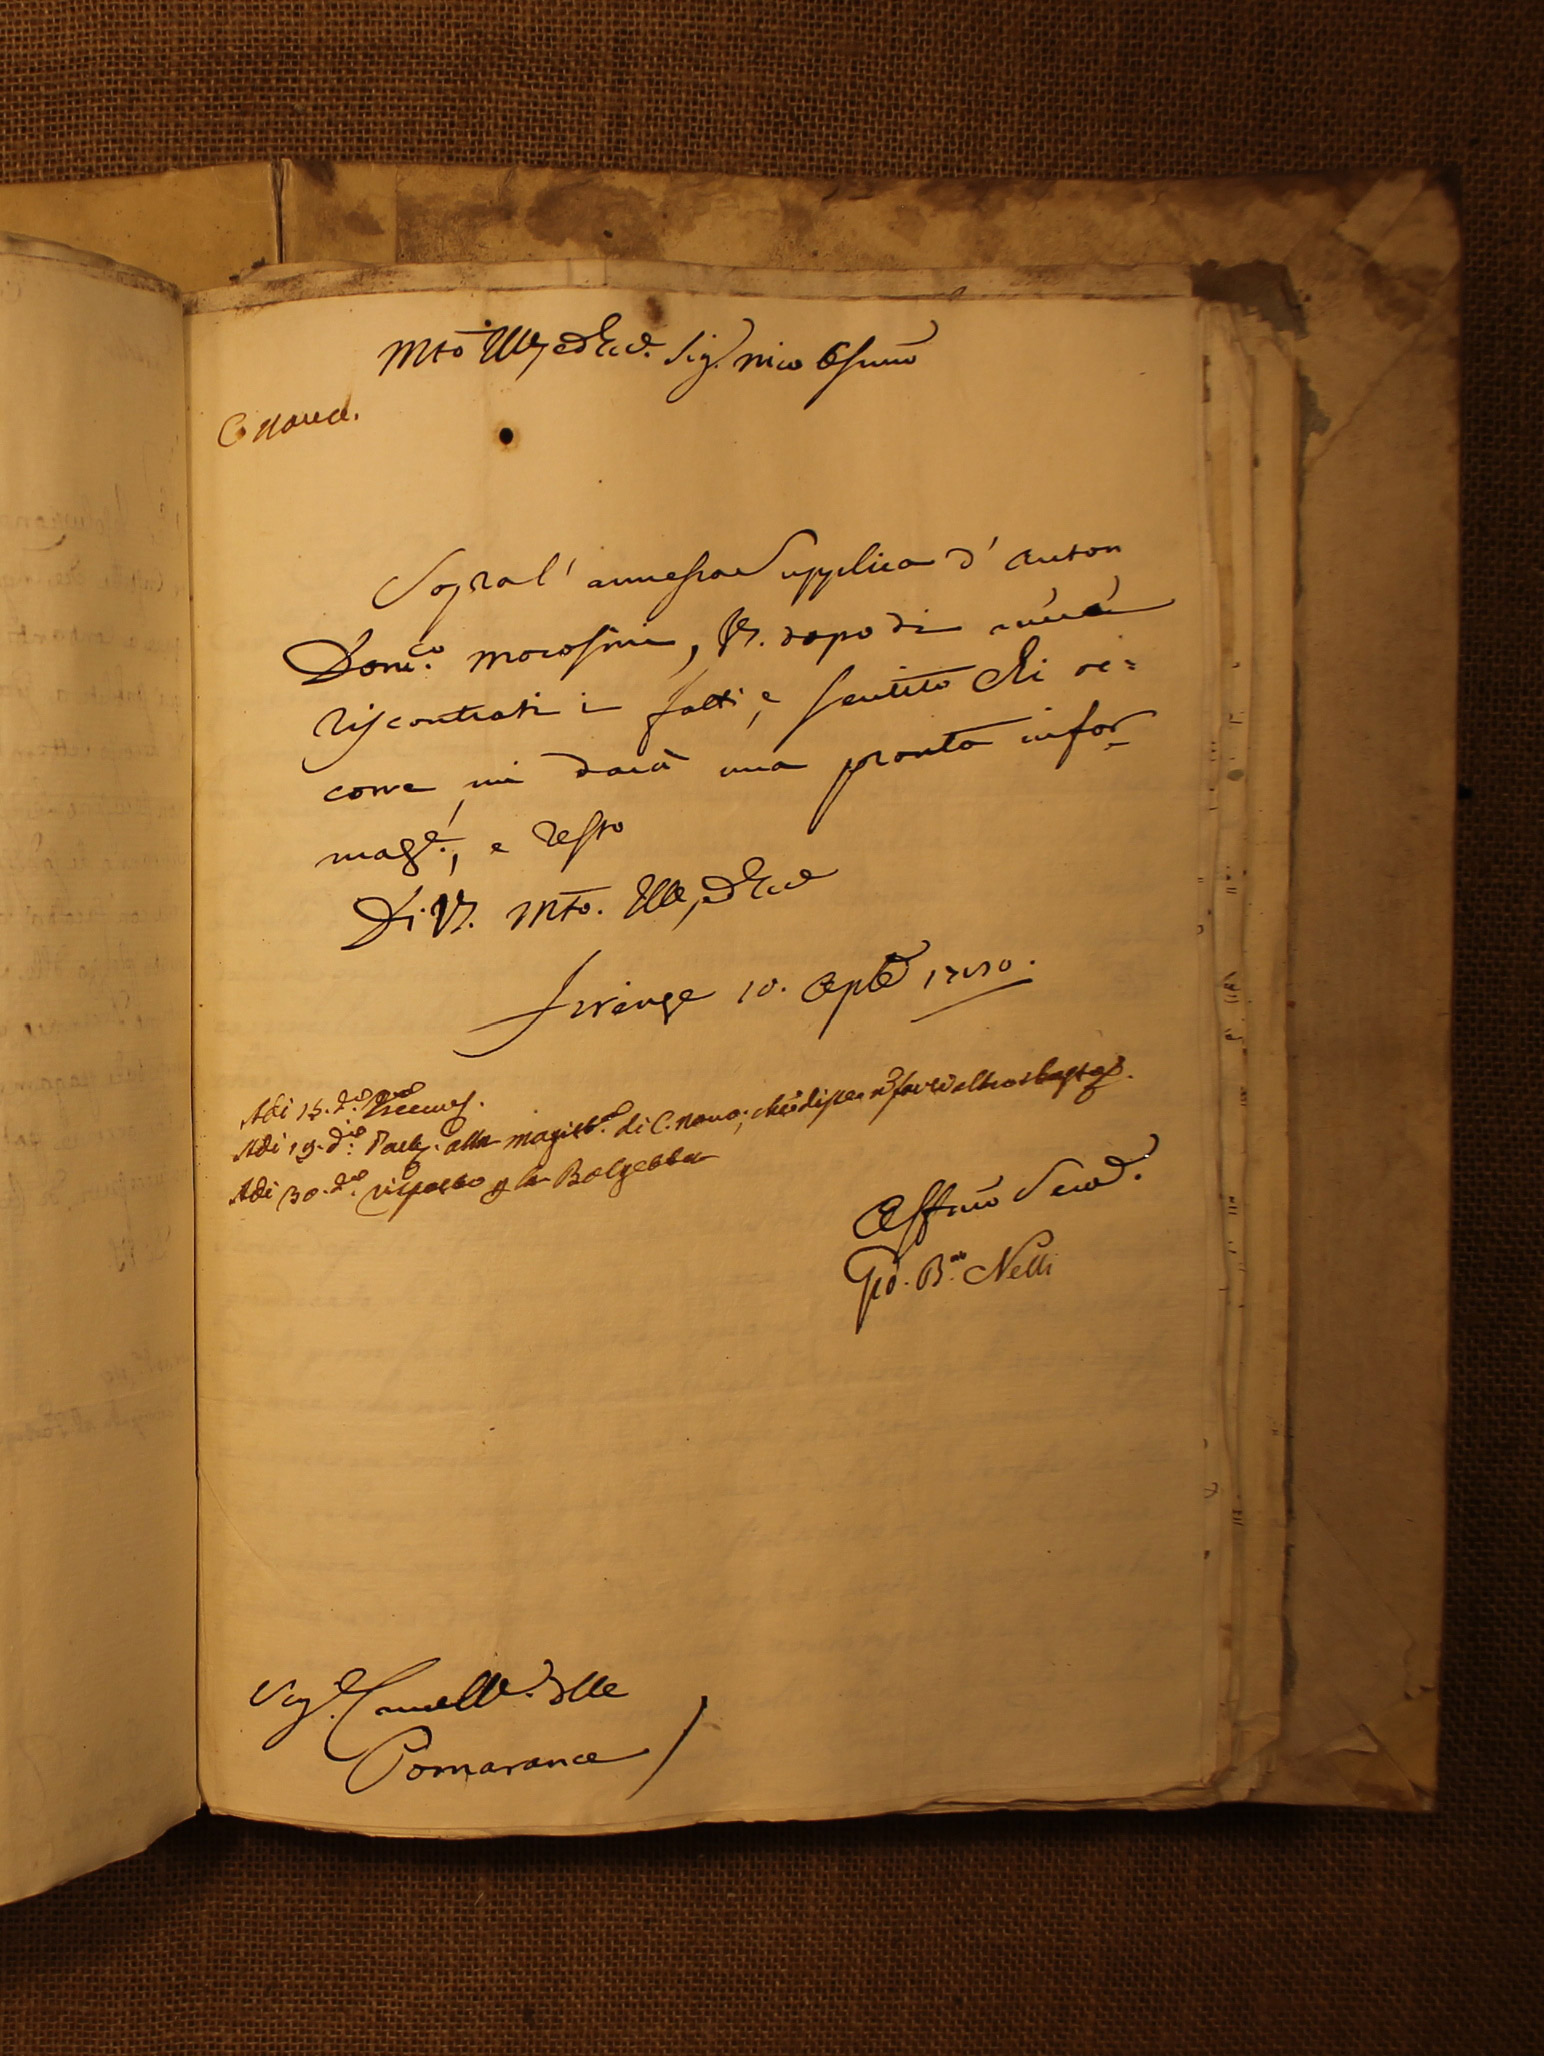 Mto Ille, ed Ecc. Sig. mio Ossmo
C. nova.
Sopra l'annessa Supplica d'Anton
Domco. Morosini, VS. dopo di avere
riscontrati i fatti, e sentito chi oc=
corre mi darà una pronta infor
maze., e resto
Di VS. Mto. Ille, ed Ecc
Firenze 10. 1750.
Adi 15. do.
Adi 19. do. Parte. alla magistra. di C. nova;
Adi 30. do. risposto p la Bolgetta
Affmo Serve.
Gio. Ba. Nelli
Sige. Cancelle. delle
Pomarance